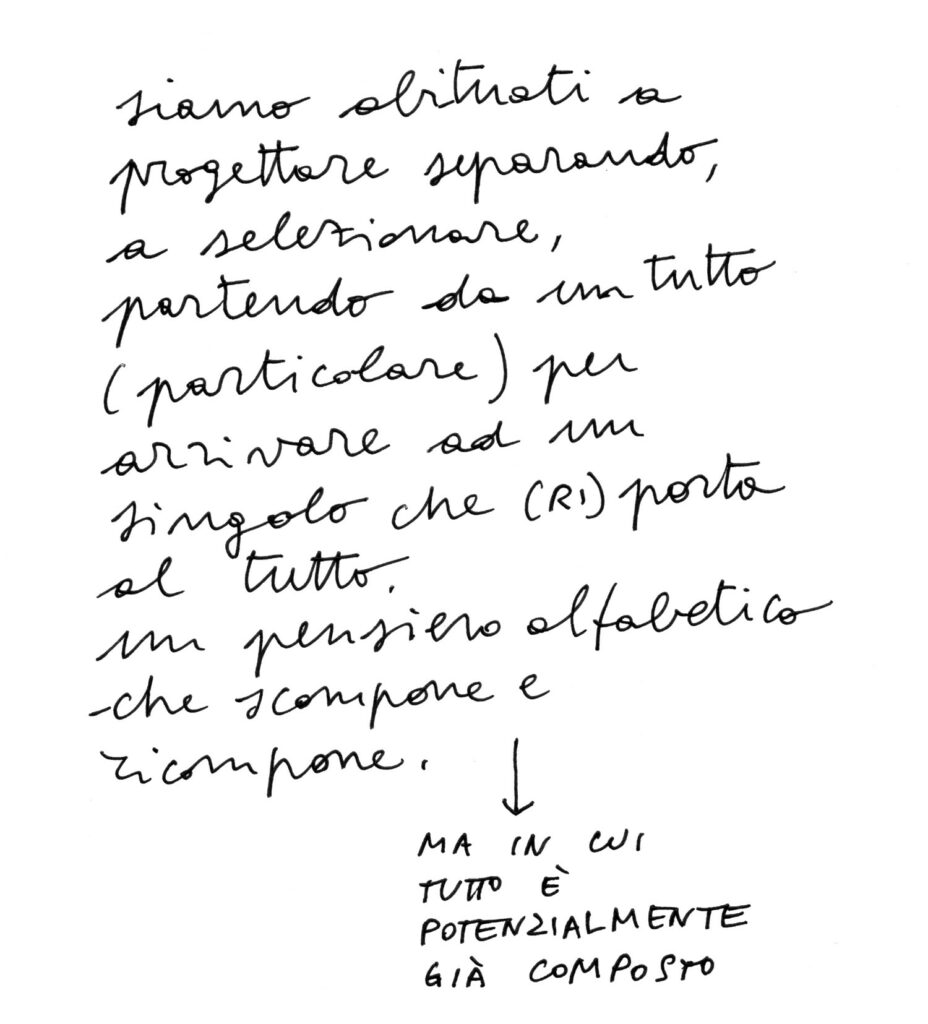 siamo abituati a
progettare separando,
a selezionare,
partendo da un tutto
(particolare) per
arrivare ad un
singolo che (RI) porta
al tutto.
un pensiero alfabetico
che scompone e
ricompone.
↓
MA IN CUI
TUTTO È
POTENZIALMENTE
GIÀ COMPOSTO